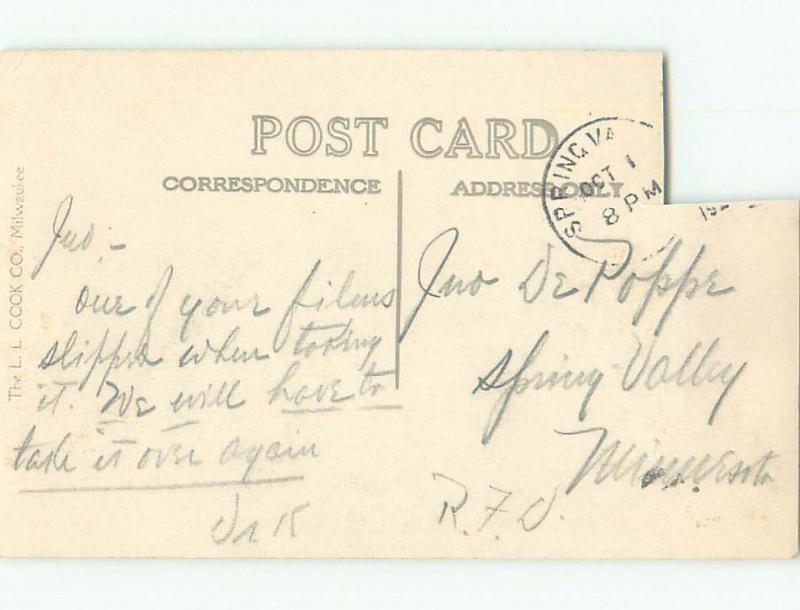 POST CARD
CORRESPONDENCE
ADDRESS ONLY
SPRING VA
OCT 1
8 PM
192
The L. L. COOK CO., Milwaukee
Jno: -
One of your films
slipped when taking
it. We will have to
take it over again
Jno De Poppe
Spring Valley
Minnesota
R.F.D.